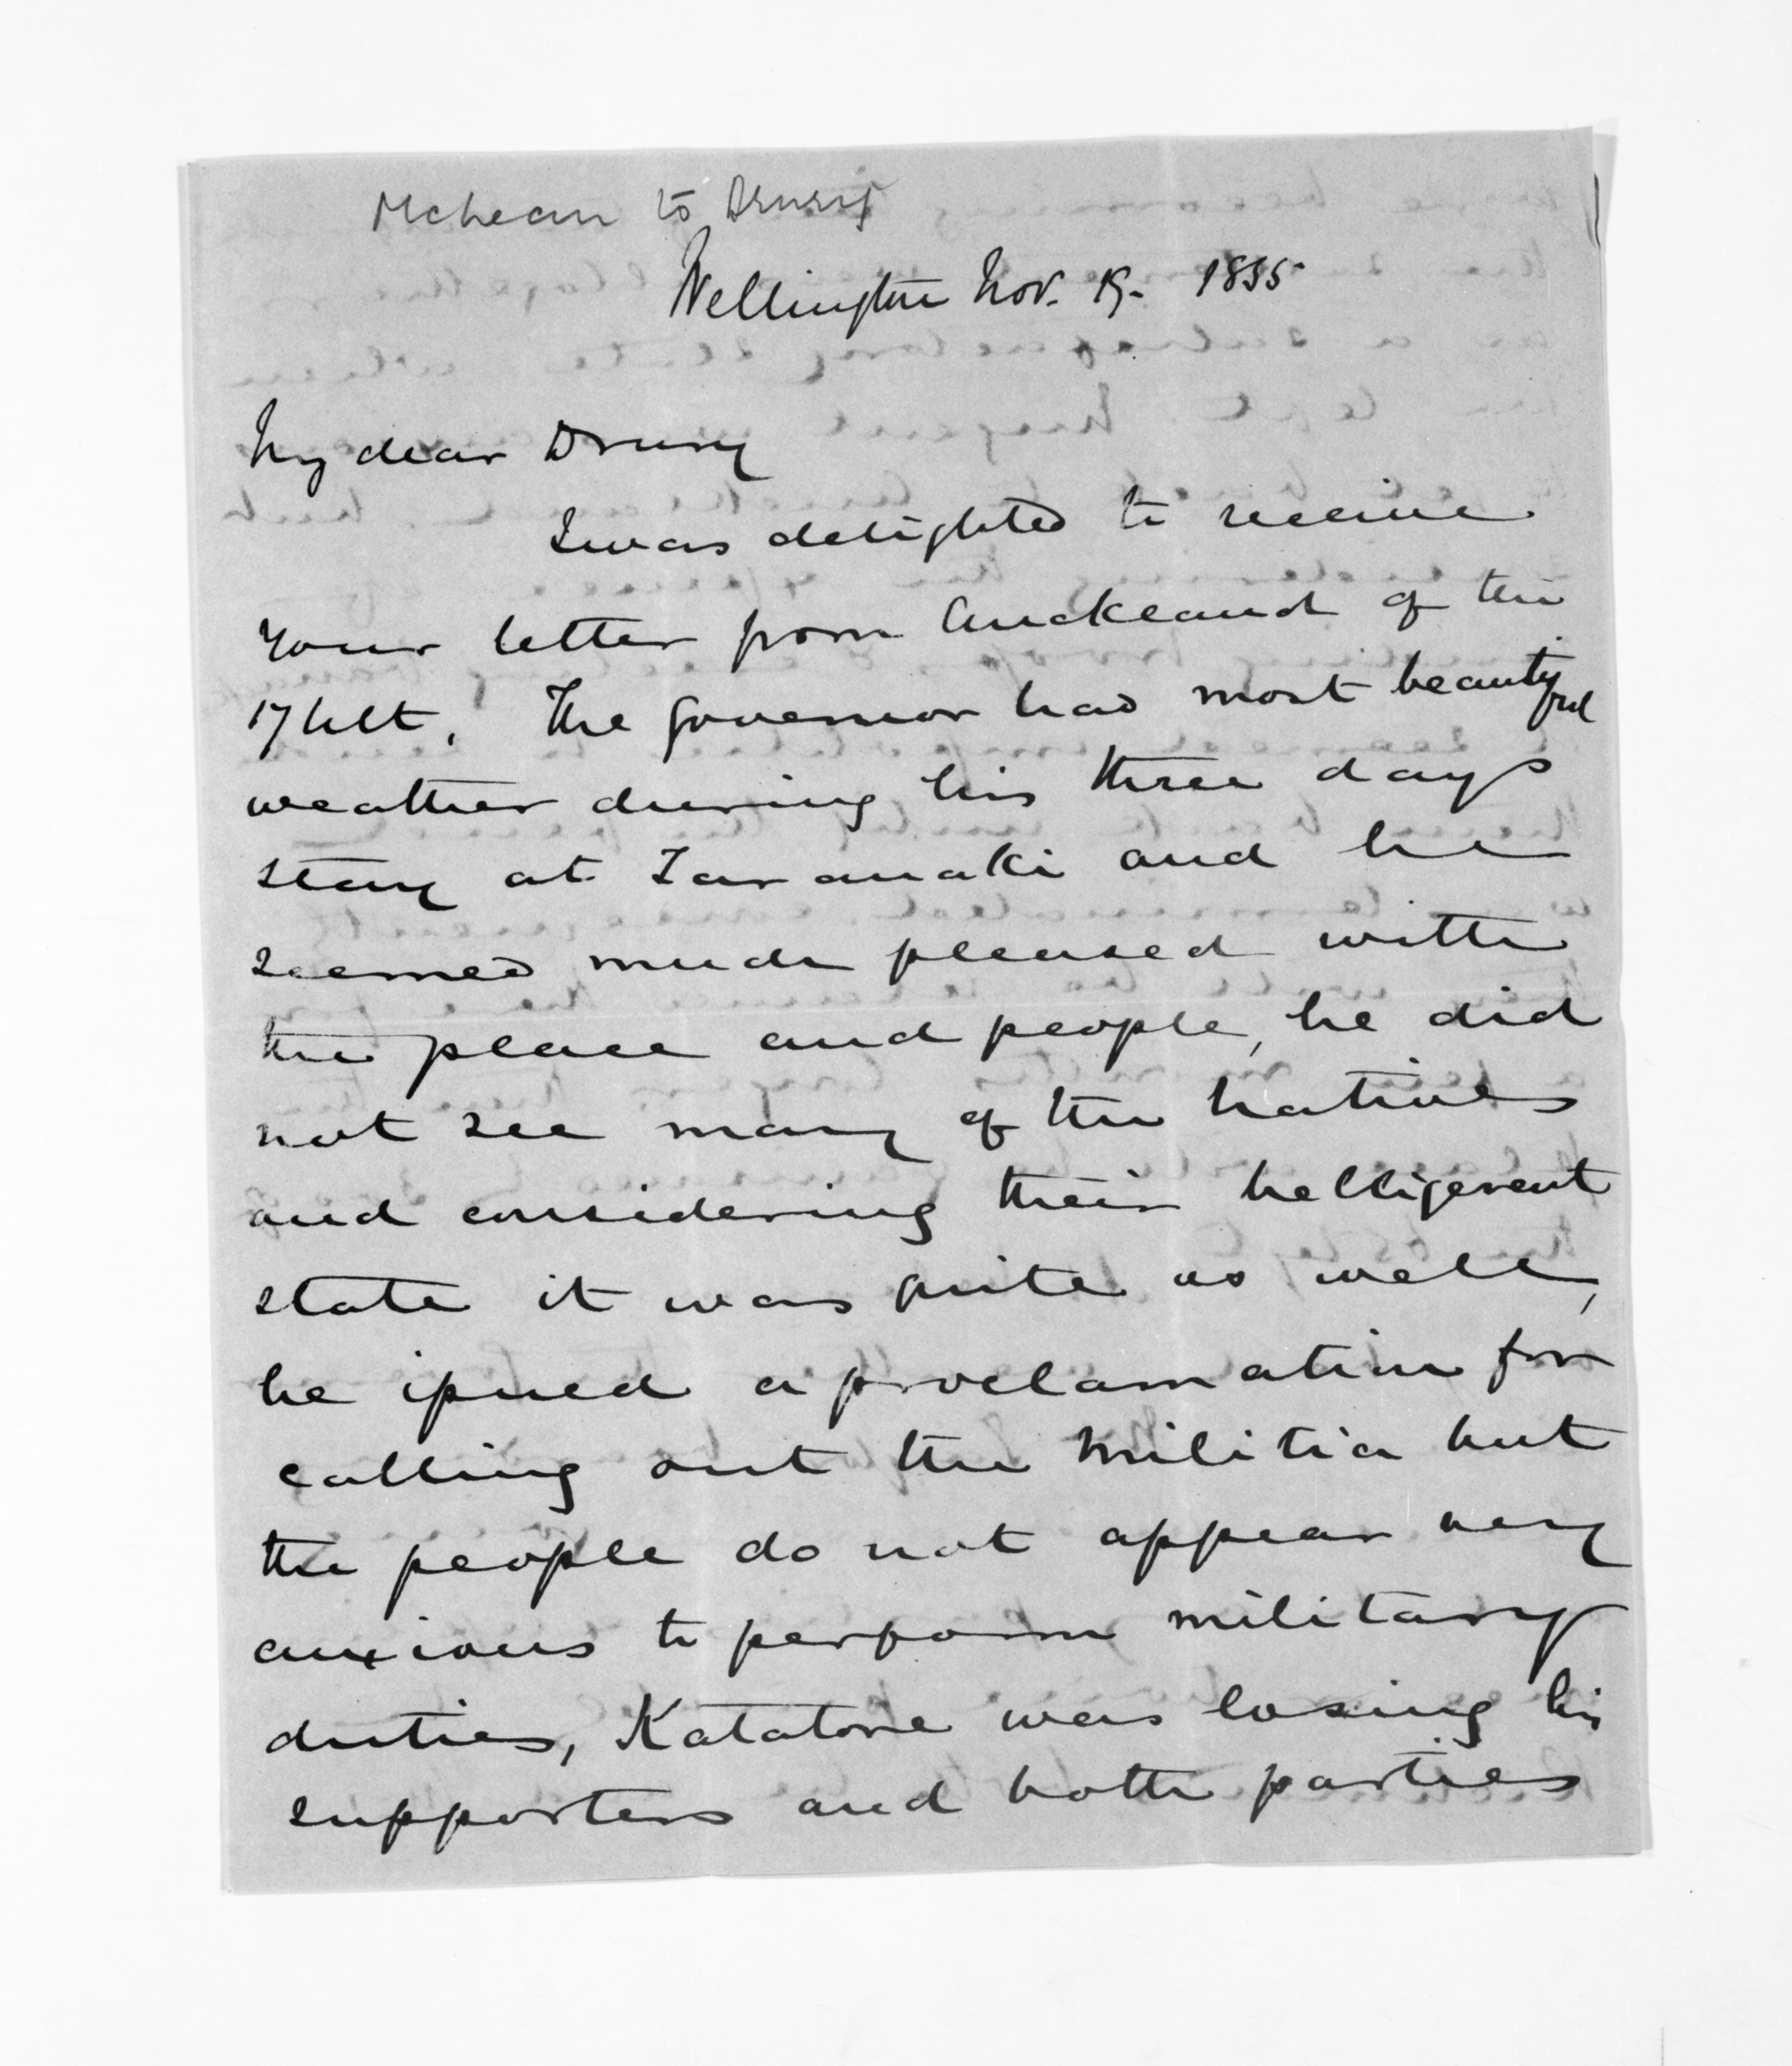 McLean to Drury
Wellington Nov. 19. 1855
My dear Drury
I was delighted to receive
your letter from Auckland of the
17 Ult. The Governor had most beautiful
weather during his three days
stay at Taranaki and he
seemed much pleased with
the place and people, he did
not see many of the natives
and considering their belligerent
state it was quite as well,
he issued a proclamation for
calling out the Militia but
the people do not appear very
anxious to perform military
duties, Katatore was losing his
supporters and both parties